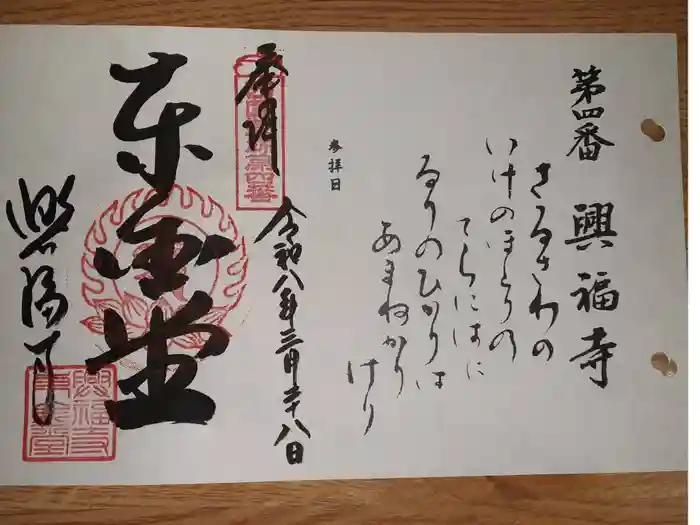 第四番 興福寺
さるさわの
いけのほとりの
てらにはに
るりのひかりは
あまねかり
けり
参拝日
奉拝
令和八年三月二十八日
第四番
東金堂
興福寺
興福寺
東金堂